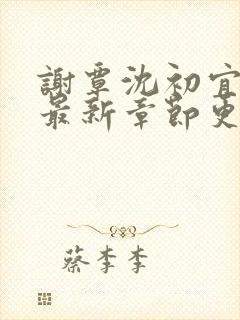 謝覃沈初宜
最新章節更
蔡李李